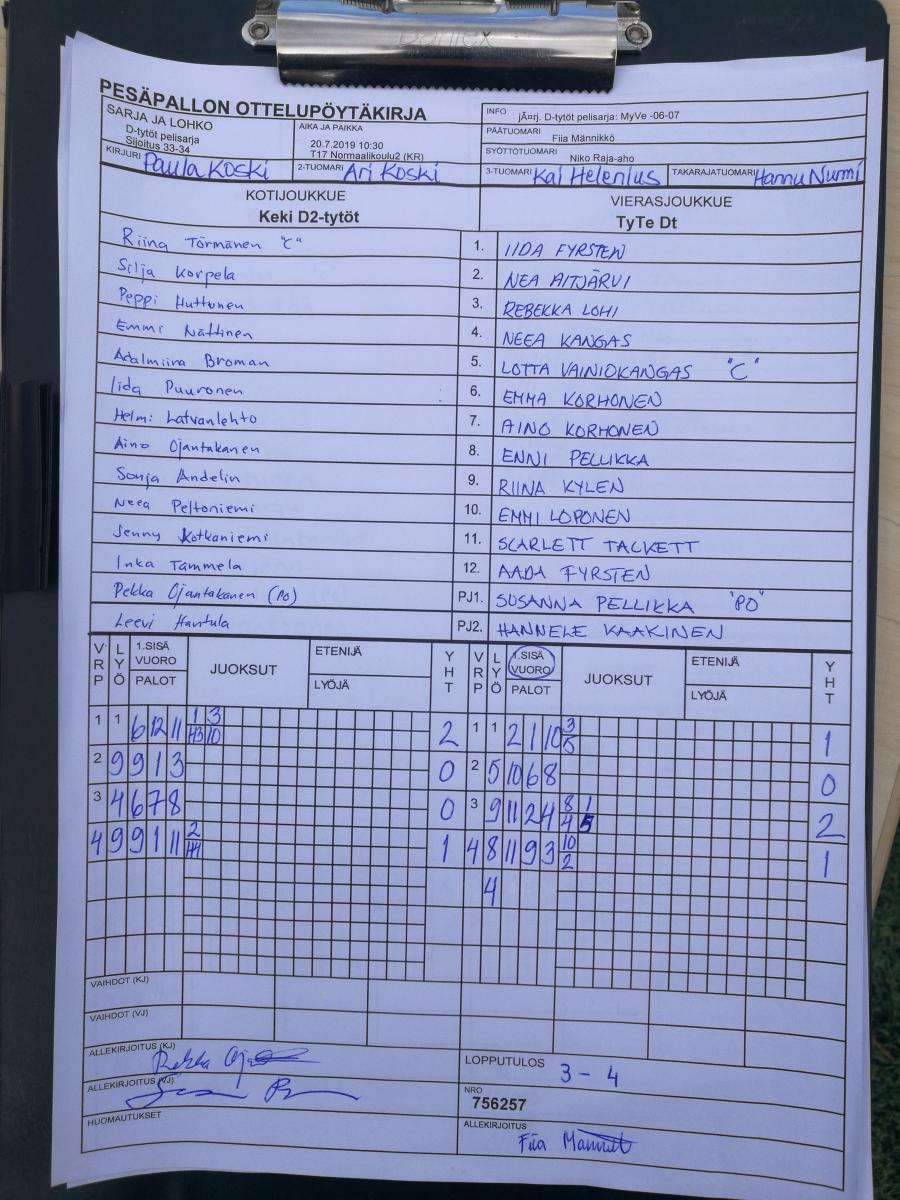 Dantex
PESÄPALLON OTTELUPÖYTÄKIRJA
SARJA JA LOHKO
D-tytöt pelisarja
Sijoitus 33-34
AIKA JA PAIKKA
20.7.2019 10:30
T17 Normaalikoulu2 (KR)
INFO jÄ¤rj. D-tytöt pelisarja: MyVe -06-07
PÄÄTUOMARI Fiia Männikkö
SYÖTTÖTUOMARI Niko Raja-aho
KIRJURI Paula Koski 2-TUOMARI Ari Koski 3-TUOMARI Kai Helenius TAKARAJATUOMARI Hannu Nurmi
KOTIJOUKKUE VIERASJOUKKUE
Keki D2-tytöt TyTe Dt
Riina Törmänen "C" 1. IIDA FYRSTEN
Silja Korpela 2. NEA AITJÄRVI
Peppi Huttunen 3. REBEKKA LOHI
Emmi Nättinen 4. NEEA KANGAS
Adalmiina Broman 5. LOTTA VAINIOKANGAS "C"
Iida Puuronen 6. EMMA KORHONEN
Helmi Latvanlehto 7. AINO KORHONEN
Aino Ojantakanen 8. ENNI PELLIKKA
Sonja Andelin 9. RIINA KYLEN
Neea Peltoniemi 10. EMMI LOPONEN
Jenny Kotkaniemi 11. SCARLETT TACKETT
Inka Tammela 12. AADA FYRSTEN
Pekka Ojantakanen (PO) PJ1. SUSANNA PELLIKKA "PO"
Leevi Hantula PJ2. HANNELE KAAKINEN
VRP LYÖ 1.SISÄ VUORO PALOT JUOKSUT ETENIJÄ LYÖJÄ YHT VRP LYÖ 1.SISÄ VUORO PALOT JUOKSUT ETENIJÄ LYÖJÄ YHT
1 1 6 12 11 1 3 2 1 1 2 1 10 3 1
H3 10 5
2 9 9 1 3 0 2 5 10 6 8 0
3 4 6 7 8 0 3 9 11 2 4 8 1 2
4 5
4 9 9 1 11 2 1 4 8 11 9 3 10 1
2
4
VAIHDOT (KJ)
VAIHDOT (VJ)
ALLEKIRJOITUS (KJ) Pekka
LOPPUTULOS 3 - 4
ALLEKIRJOITUS (VJ)
NRO
756257
HUOMAUTUKSET
ALLEKIRJOITUS
Fiia